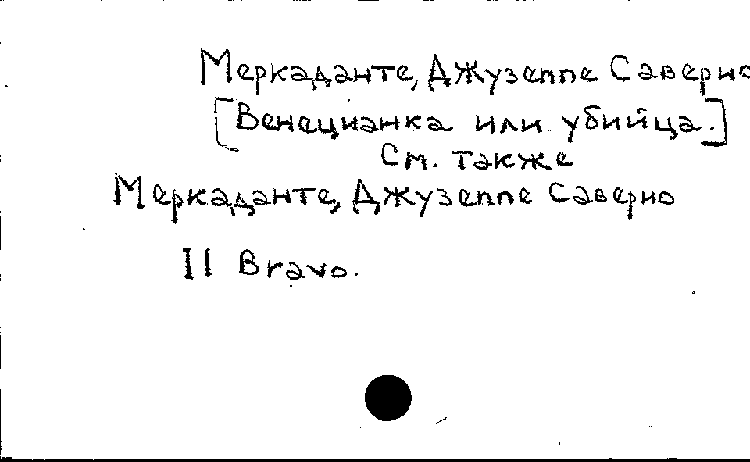 Меркаданте, Джузеппе Саверио
[Венецианка или убийца.]
См. также
Меркаданте, Джузеппе Саверио
Il Bravo.